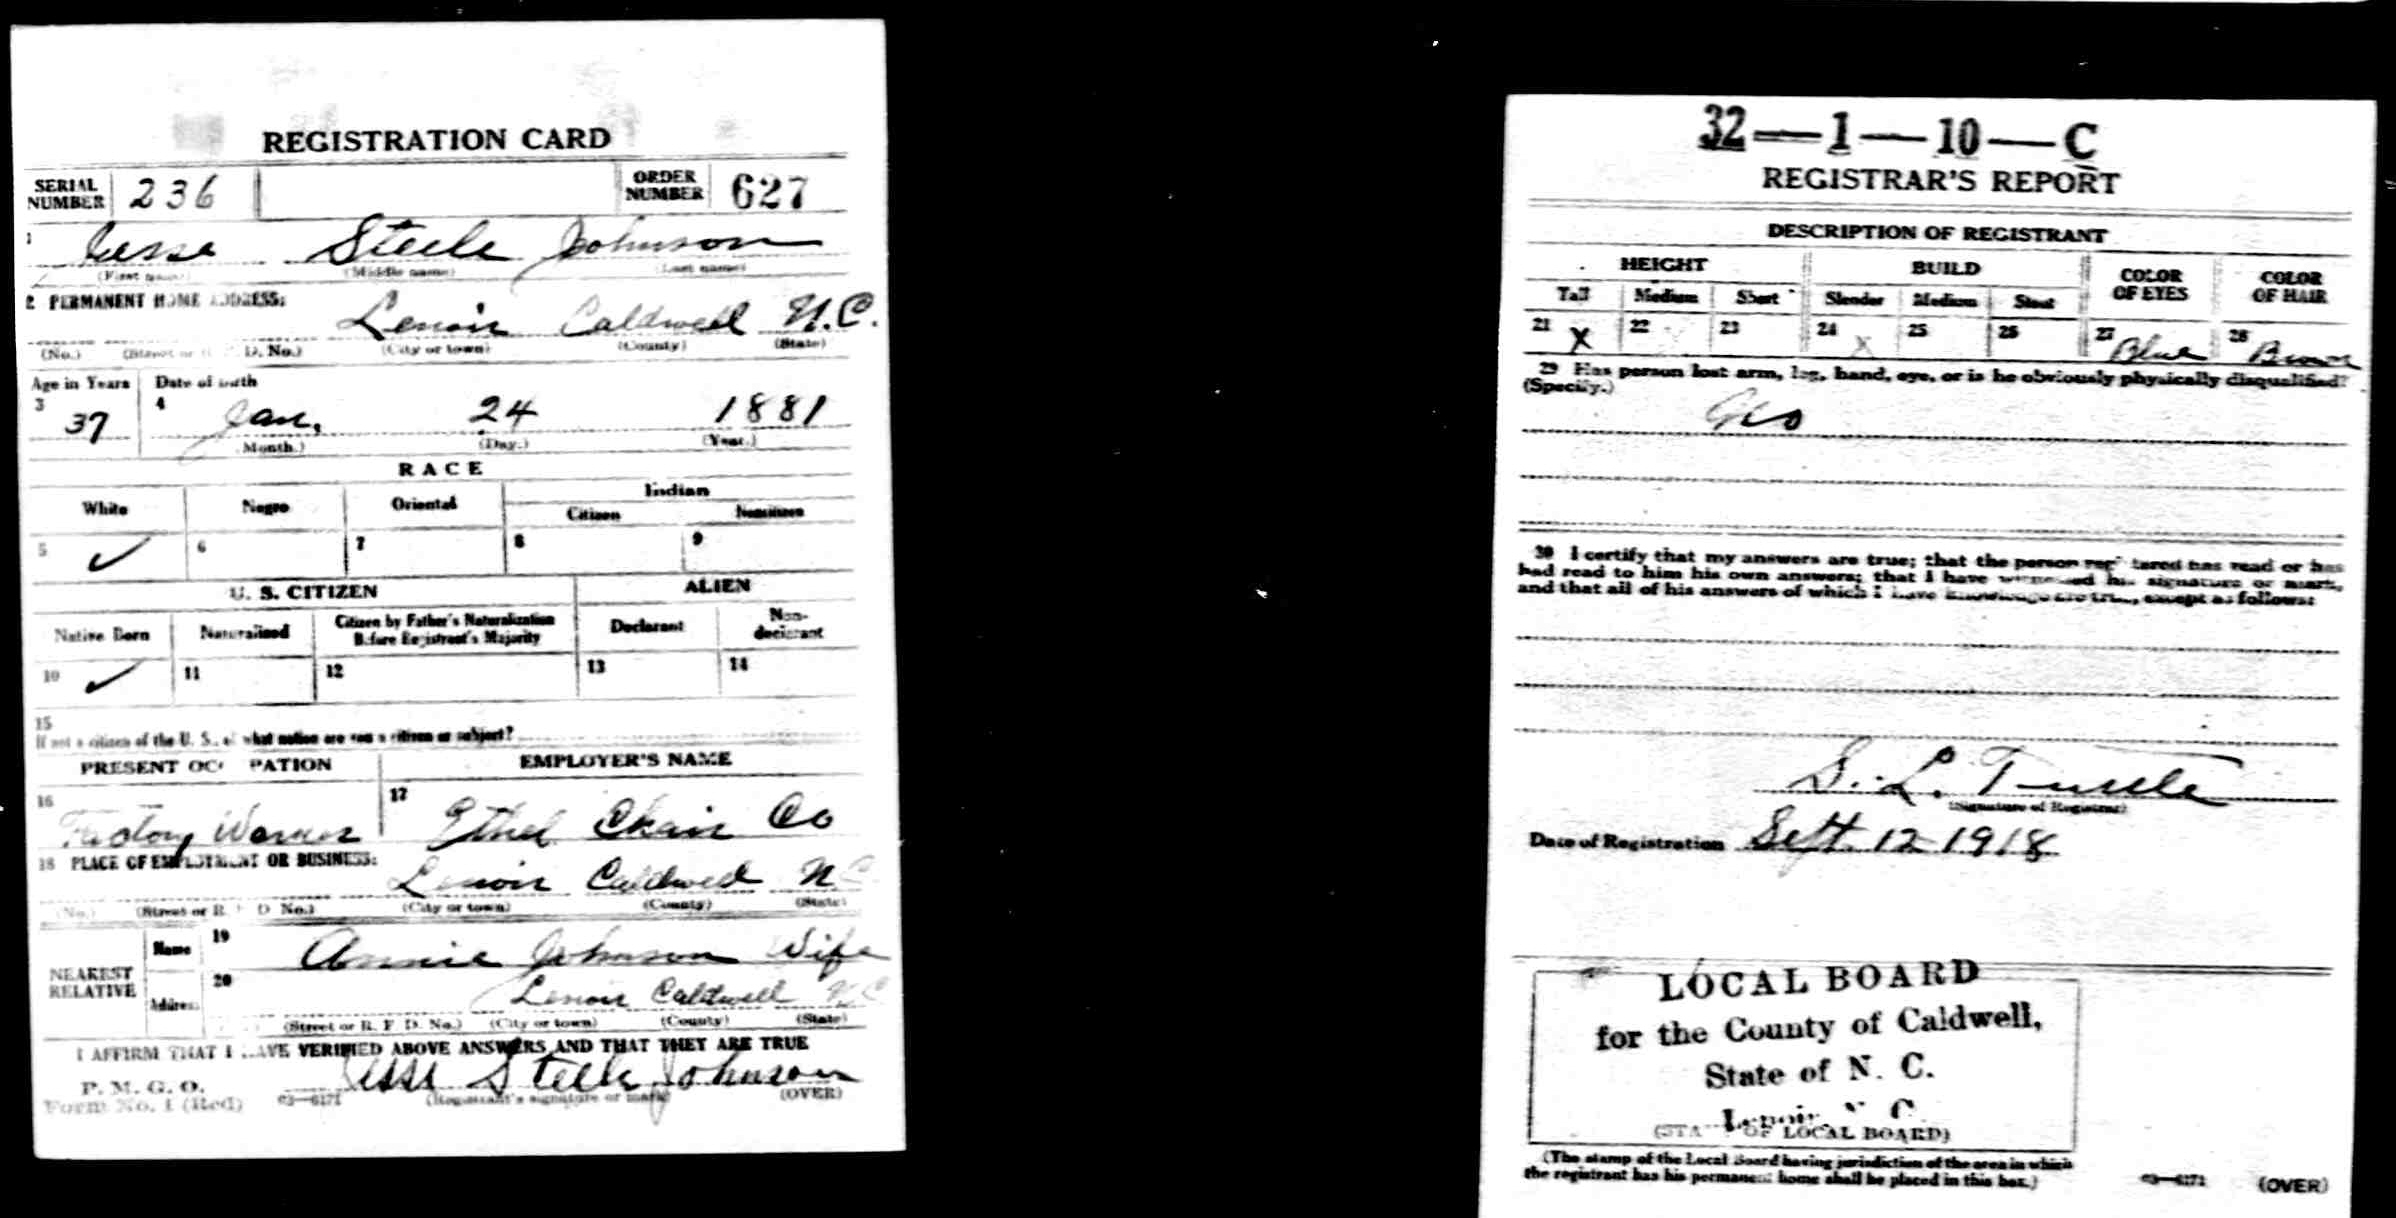 REGISTRATION CARD
SERIAL NUMBER 236 ORDER NUMBER 627
1 Jesse Steele Johnson
(First name) (Middle name) (Last name)
2 PERMANENT HOME ADDRESS:
Lenoir Caldwell N.C.
(No.) (Street or R. F. D. No.) (City or town) (County) (State)
Age in Years Date of birth
3 37 4 Jan. 24 1881
(Month.) (Day.) (Year.)
RACE
White Negro Oriental Indian
Citizen Noncitizen
5 ✓ 6 7 8 9
U. S. CITIZEN ALIEN
Native Born Naturalized Citizen by Father's Naturalization Before Registrant's Majority Declarant Non-declarant
10 ✓ 11 12 13 14
15
If not a citizen of the U. S., of what nation are you a citizen or subject?
PRESENT OCCUPATION EMPLOYER'S NAME
16 Factory 17 Ethel Chair Co
18 PLACE OF EMPLOYMENT OR BUSINESS:
Lenoir Caldwell N C
(No.) (Street or R. F. D. No.) (City or town) (County) (State)
NEAREST RELATIVE Name 19 Annie Johnson Wife
Address 20 Lenoir Caldwell N C
(Street or R. F. D. No.) (City or town) (County) (State)
I AFFIRM THAT I HAVE VERIFIED ABOVE ANSWERS AND THAT THEY ARE TRUE
P. M. G. O.
Form No. 1 (Red) 03—6171 Jesse Steele Johnson
(Registrant's signature or mark) (OVER)
32—1—10—C
REGISTRAR'S REPORT
DESCRIPTION OF REGISTRANT
HEIGHT BUILD COLOR OF EYES COLOR OF HAIR
Tall Medium Short Slender Medium Stout
21 X 22 23 24 X 25 26 27 Blue 28 Brown
29 Has person lost arm, leg, hand, eye, or is he obviously physically disqualified?
(Specify.)
30 I certify that my answers are true; that the person registered has read or has
had read to him his own answers; that I have witnessed his signature or mark,
and that all of his answers of which I have knowledge are true, except as follows:
S. L. Tuttle
(Signature of Registrar)
Date of Registration Sept. 12 1918
LOCAL BOARD
for the County of Caldwell,
State of N. C.
Lenoir, N. C.
(STAMP OF LOCAL BOARD)
(The stamp of the Local Board having jurisdiction of the area in which
the registrant has his permanent home shall be placed in this box.)
03—6171 (OVER)